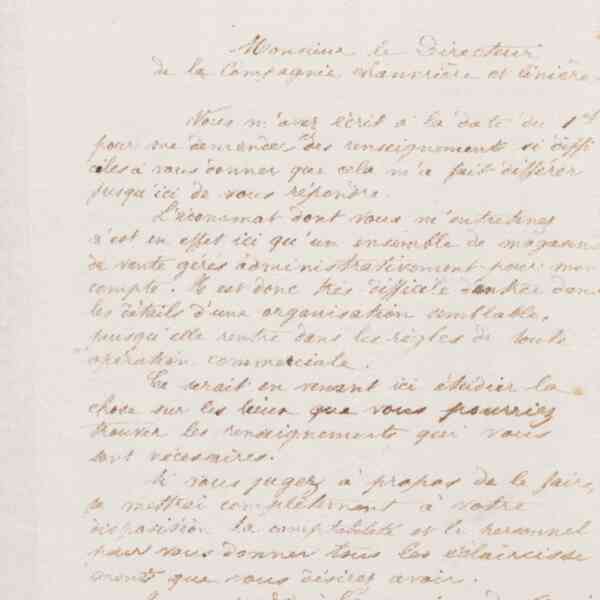 Monsieur le Directeur
de la Compagnie chanvrière et linière
Vous m'avez écrit à la date du 1er
pour me demander des renseignements si diffi
ciles à vous donner que cela m'a fait différer
jusqu'ici de vous répondre.
L'économat dont vous m'entretenez
n'est en effet ici qu'un ensemble de magasins
de vente gérés administrativement pour mon
compte. Il est donc très difficile d'entrer dans
les détails d'une organisation semblable,
puisqu'elle rentre dans les règles de toute
opération commerciale.
Ce serait en venant ici étudier la
chose sur les lieux que vous pourriez
trouver les renseignements qui vous
sont nécessaires.
Si vous jugez à propos de le faire,
je mettrai complètement à votre
disposition la comptabilité et le personnel
pour vous donner tous les éclaircisse
ments que vous désirez avoir.